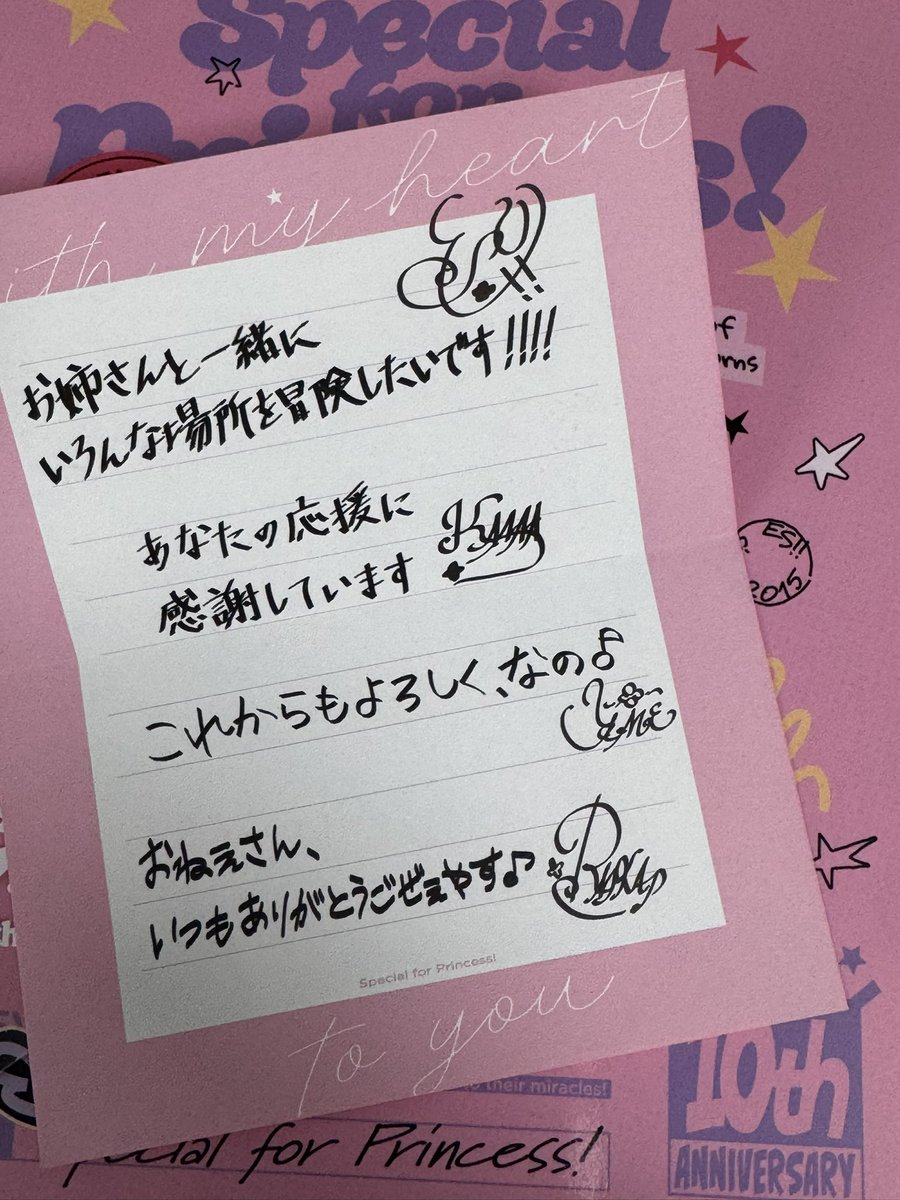 Special
for
with my heart
お姉さんと一緒に
いろんな場所を冒険したいです!!!!
あなたの応援に
感謝しています
KANAA
これからもよろしく、なの♪
おねえさん、
いつもありがとうごぜぇやす♪
Special for Princess!
to you
ES!!
2015
their miracles!
10th
ANNIVERSARY
Special for Princess!